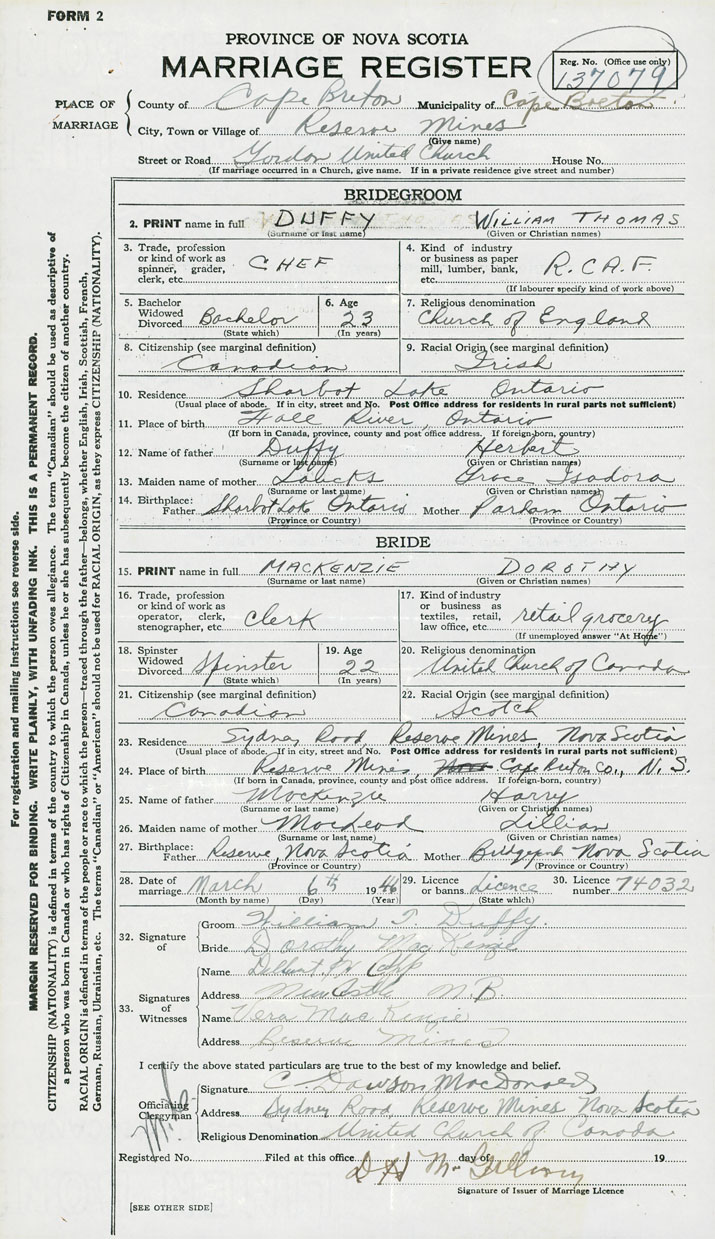 FORM 2
PROVINCE OF NOVA SCOTIA
MARRIAGE REGISTER
Reg. No. (Office use only)
137079
PLACE OF MARRIAGE
County of Cape Breton Municipality of Cape Breton
City, Town or Village of Reserve Mines
(Give name)
Street or Road Gordon United Church House No.
(If marriage occurred in a Church, give name. If in a private residence give street and number)
BRIDEGROOM
2. PRINT name in full DUFFY WILLIAM THOMAS
(Surname or last name) (Given or Christian names)
3. Trade, profession or kind of work as spinner, grader, clerk, etc. CHEF
4. Kind of industry or business as paper mill, lumber, bank, etc. R.C.A.F.
(If labourer specify kind of work above)
5. Bachelor Widowed Divorced Bachelor
(State which)
6. Age 23
(In years)
7. Religious denomination
Church of England
8. Citizenship (see marginal definition)
Canadian
9. Racial Origin (see marginal definition)
Irish
10. Residence Sharbot Lake Ontario
(Usual place of abode. If in city, street and No. Post Office address for residents in rural parts not sufficient)
11. Place of birth River, Ontario
(If born in Canada, province, county and post office address. If foreign-born, country)
12. Name of father Duffy Herbert
(Surname or last name) (Given or Christian names)
13. Maiden name of mother Grace Isadora
(Surname or last name) (Given or Christian names)
14. Birthplace: Father Sharbot Lake Ontario Mother Parham Ontario
(Province or Country) (Province or Country)
BRIDE
15. PRINT name in full MACKENZIE DOROTHY
(Surname or last name) (Given or Christian names)
16. Trade, profession or kind of work as operator, clerk, stenographer, etc. Clerk
17. Kind of industry or business as textiles, retail, law office, etc. retail grocery
(If unemployed answer "At Home")
18. Spinster Widowed Divorced Spinster
(State which)
19. Age 22
(In years)
20. Religious denomination
United Church of Canada
21. Citizenship (see marginal definition)
Canadian
22. Racial Origin (see marginal definition)
Scotch
23. Residence Sydney Road, Reserve Mines, Nova Scotia
(Usual place of abode. If in city, street and No. Post Office address for residents in rural parts not sufficient)
24. Place of birth Reserve Mines, Cape Breton Co., N.S.
(If born in Canada, province, county and post office address. If foreign-born, country)
25. Name of father MacKenzie Harry
(Surname or last name) (Given or Christian names)
26. Maiden name of mother MacLeod Lillian
(Surname or last name) (Given or Christian names)
27. Birthplace: Father Reserve, Nova Scotia Mother Bridgeport Nova Scotia
(Province or Country) (Province or Country)
28. Date of marriage March 6th 1946
(Month by name) (Day) (Year)
29. Licence or banns Licence
(State which)
30. Licence number 74032
32. Signature of
Groom William T. Duffy
Bride Dorothy MacKenzie
33. Signatures of Witnesses
Name
Address N.B.
Name Vera MacKenzie
Address Reserve Mines
I certify the above stated particulars are true to the best of my knowledge and belief.
Officiating Clergyman
Signature C Dawson MacDonald
Address Sydney Road, Reserve Mines Nova Scotia
Religious Denomination United Church of Canada
Registered No. Filed at this office day of 19
Signature of Issuer of Marriage Licence
[SEE OTHER SIDE]
For registration and mailing instructions see reverse side.
MARGIN RESERVED FOR BINDING. WRITE PLAINLY, WITH UNFADING INK. THIS IS A PERMANENT RECORD.
CITIZENSHIP (NATIONALITY) is defined in terms of the country to which the person owes allegiance. The term "Canadian" should be used as descriptive of
a person who was born in Canada or who has rights of Citizenship in Canada, unless he or she has subsequently become the citizen of another country.
RACIAL ORIGIN is defined in terms of the people or race to which the person—traced through the father—belongs, whether English, Irish, Scottish, French,
German, Russian, Ukrainian, etc. The terms "Canadian" or "American" should not be used for RACIAL ORIGIN, as they express CITIZENSHIP (NATIONALITY).